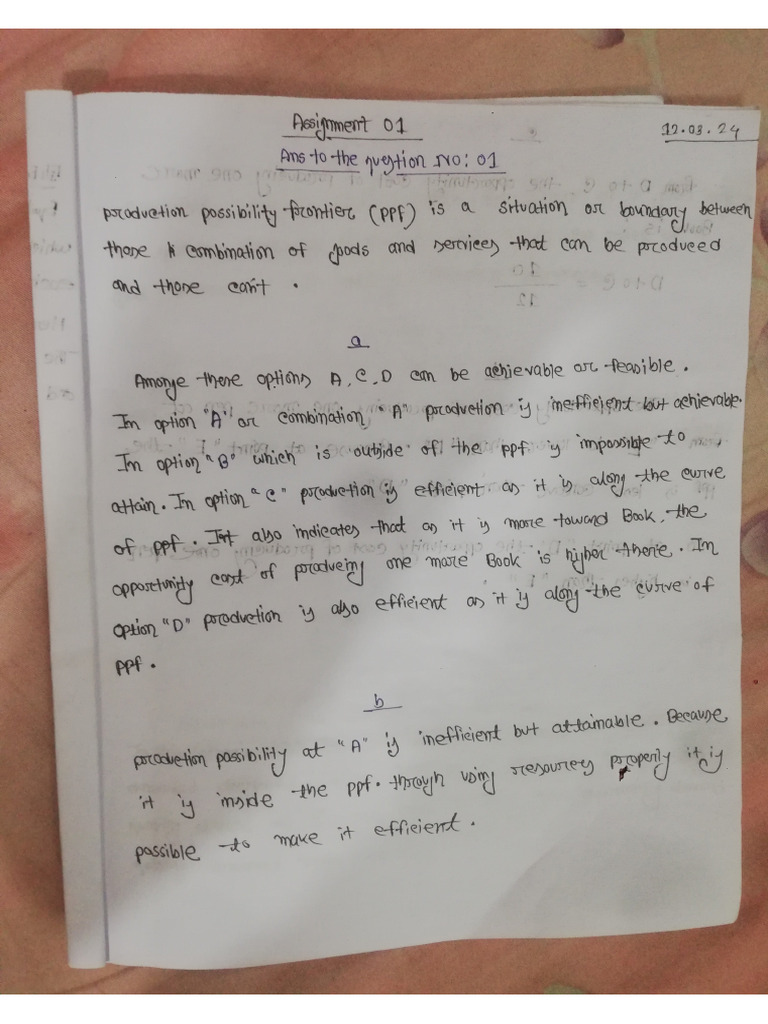 Assignment 01
12.03.24
Ans to the question NO: 01
production possibility frontier (PPF) is a situation or boundary between
those combination of goods and services that can be produced
and those can't .
a
Amonge these options A, C, D can be achievable or feasible .
In option "A" or combination "A" production is inefficient but achievable.
In option "B" which is outside of the PPF is impossible to
attain. In option "C" production is efficient as it is along the curve
of PPF. It also indicates that as it is more toward Book, the
opportunity cost of producing one more Book is higher there. In
option "D" production is also efficient as it is along the curve of
PPF.
b
production possibility at "A" is inefficient but attainable. Because
it is inside the PPF. through using resources properly it is
possible to make it efficient.